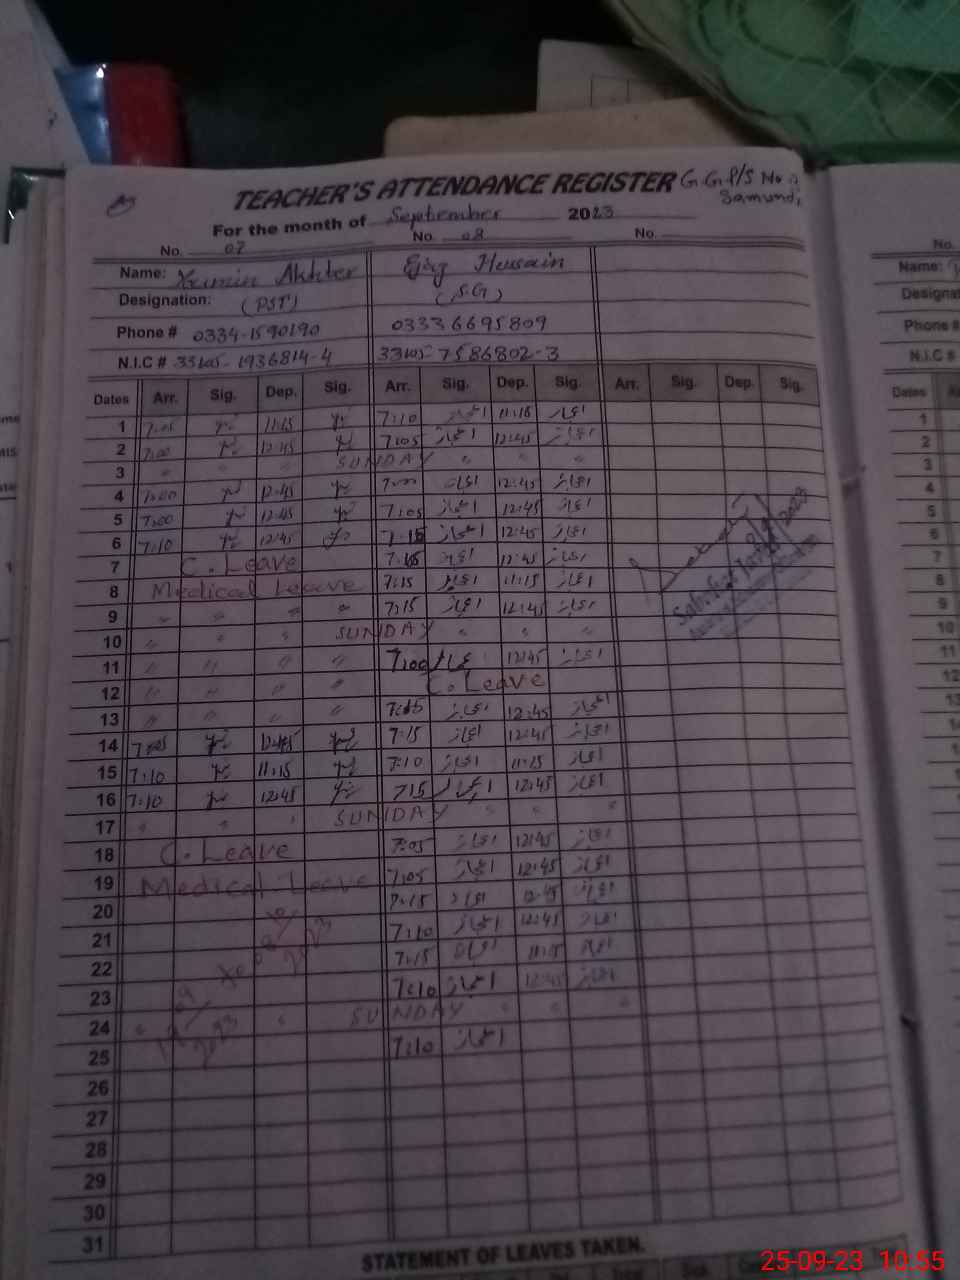 TEACHER'S ATTENDANCE REGISTER G.G.P/S No
For the month of September 2023
No. 07 No. 08 No.
Name: Akhter Hussain
Designation: (PST) (S.G)
Phone # 0334-1590190 03336695809
N.I.C # 33105-1936814-4 33105-7586802-3
Dates Arr. Sig. Dep. Sig. Arr. Sig. Dep. Sig. Arr. Sig. Dep. Sig.
1 7:05 11:15 7:10 اعجاز 11:15 اعجاز
2 7:00 12:45 7:05 اعجاز 12:45 اعجاز
3 " " " SUNDAY " " "
4 7:00 12:45 7:00 اعجاز 12:45 اعجاز
5 7:00 12:45 7:05 اعجاز 12:45 اعجاز
6 7:10 12:45 7:15 اعجاز 12:45 اعجاز
7 C. Leave 7:15 اعجاز 12:45 اعجاز
8 Medical Leave 7:15 اعجاز 11:15 اعجاز
9 " " " " 7:15 اعجاز 12:45 اعجاز
10 " " " SUNDAY " " "
11 " " " " 7:00 اعجاز 12:45 اعجاز
12 " " " " C. Leave
13 " " " " 7:15 اعجاز 12:45 اعجاز
14 7:05 12:45 7:15 اعجاز 12:45 اعجاز
15 7:10 11:15 7:10 اعجاز 11:15 اعجاز
16 7:10 12:45 7:15 اعجاز 12:45 اعجاز
17 " " " SUNDAY " " "
18 C. Leave 7:05 اعجاز 12:45 اعجاز
19 Medical Leave 7:05 اعجاز 12:45 اعجاز
20 7:15 اعجاز 12:45 اعجاز
21 7:10 اعجاز 12:45 اعجاز
22 7:15 اعجاز 11:15 اعجاز
23 7:10 اعجاز 12:45 اعجاز
24 " " SUNDAY " " "
25 7:10 اعجاز
26
27
28
29
30
31
STATEMENT OF LEAVES TAKEN.
25-09-23 10:55